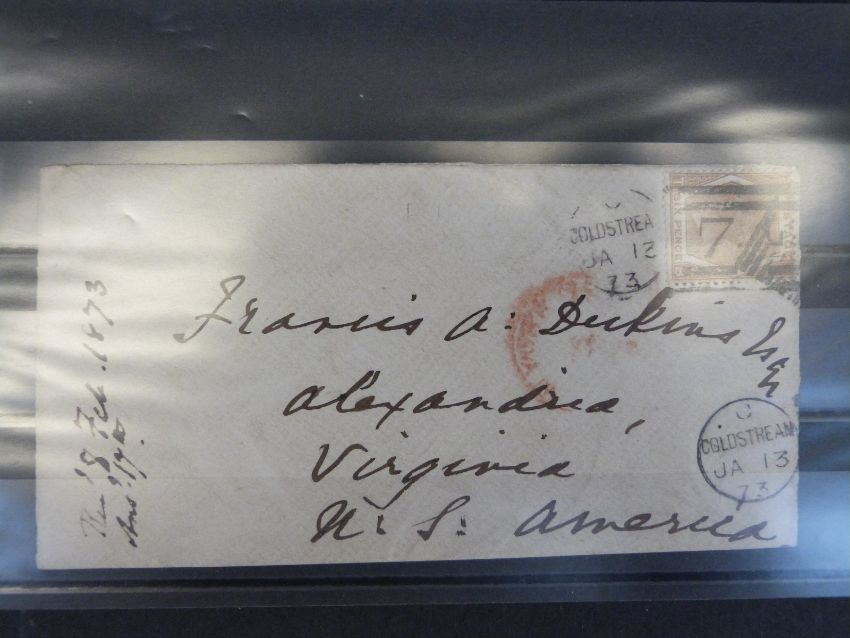 C
COLDSTREA
JA 13
73
SIX PENCE
7
Francis A: Dickins Esq
Alexandria,
Virginia
U. S. America
C
COLDSTREAM
JA 13
73
8 Feb. 1873
Ans. 17